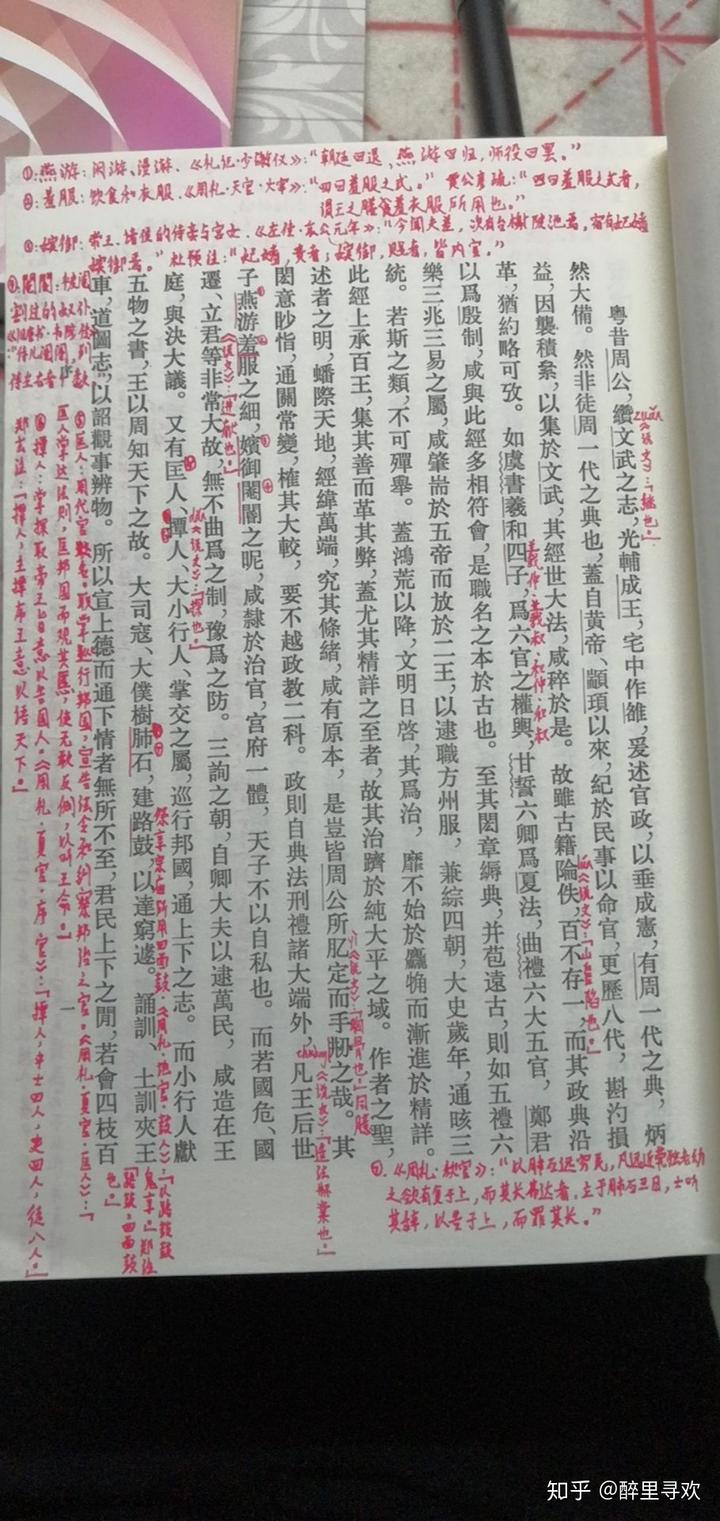 ①:燕游:闲游、漫游.《礼记·少仪》:“朝廷曰退,燕游曰归,师役曰罢。”
②:羞服:饮食和衣服.《周礼·天官·大宰》:“四曰羞服之式。”贾公彦疏:“四曰羞服之式者,
谓王之膳羞衣服所用也。”
③:嫔御:帝王、诸侯的侍妾与宫女.《左传·哀公元年》:“今闻夫差,次有台榭陂池焉,宿有妃嫱
嫔御焉。”杜预注:“妃嫱,贵者;嫔御,贱者,皆内官。”
粵昔周公,纘文武之志,光輔成王,宅中作雒,爰述官政,以垂成憲,有周一代之典,炳
zuǎn《说文》:“继也。”
然大備。然非徒周一代之典也,蓋自黃帝、顓頊以來,紀於民事以命官,更歷八代,斟汋損
益,因襲積絫,以集於文武,其經世大法,咸稡於是。故雖古籍陯佚,百不存一,而其政典沿
革,猶約略可攷。如虞書羲和四子,爲六官之權輿,甘誓六卿爲夏法,曲禮六大五官,鄭君
羲仲·羲叔·和仲·和叔
以爲殷制,咸與此經多相符會,是職名之本於古也。至其閎章縟典,并苞遠古,則如五禮六
樂三兆三易之屬,咸肇耑於五帝而放於二王,以逮職方州服,兼綜四朝,大史歲年,通晐三
統。若斯之類,不可殫舉。蓋鴻荒以降,文明日啓,其爲治,靡不始於麤觕而漸進於精詳。
此經上承百王,集其善而革其弊,蓋尤其精詳之至者,故其治躋於純大平之域。作者之聖,
述者之明,蟠際天地,經緯萬端,究其條緒,咸有原本,是豈皆周公所肊定而手刱之哉。其
閎意眇恉,通關常變,榷其大較,要不越政教二科。政則自典法刑禮諸大端外,凡王后世
子燕游羞服之細,嬪御閽闇之昵,咸隸於治官,宮府一體,天子不以自私也。而若國危、國
遷、立君等非常大故,無不曲爲之制,豫爲之防。三詢之朝,自卿大夫以逮萬民,咸造在王
庭,與決大議。又有匡人、撢人、大小行人、掌交之屬,巡行邦國,通上下之志。而小行人獻
五物之書,王以周知天下之故。大司寇、大僕樹肺石,建路鼓,以達窮遽。誦訓、土訓夾王
車,道圖志,以詔觀事辨物。所以宣上德而通下情者無所不至,君民上下之閒,若會四枝百
一
⑦.《周礼·秋官》:“以肺石达穷民,凡远近茕独老幼
之欲有复于上,而其长弗达者,立于肺石三日,士听
其辞,以告于上,而罪其长。”
⑥撢人:掌探取帝王旨意以告国人.《周礼·夏官·序官》:“撢人,中士四人,史四人,徒八人。”
郑玄注:“撢人,主撢序王意以语天下。”
知乎 @醉里寻欢